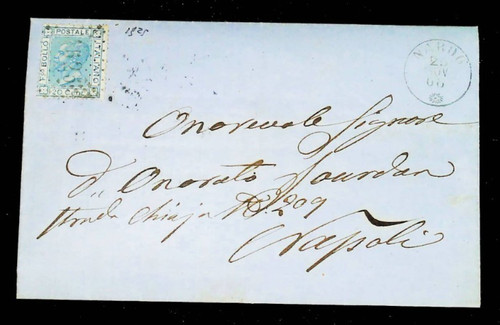 POSTALE
BOLLO
1825
NARDO
NOV
66
Onorevole Signore
D.n Onorato Jourdan
Strada Chiaja N. 209
Napoli